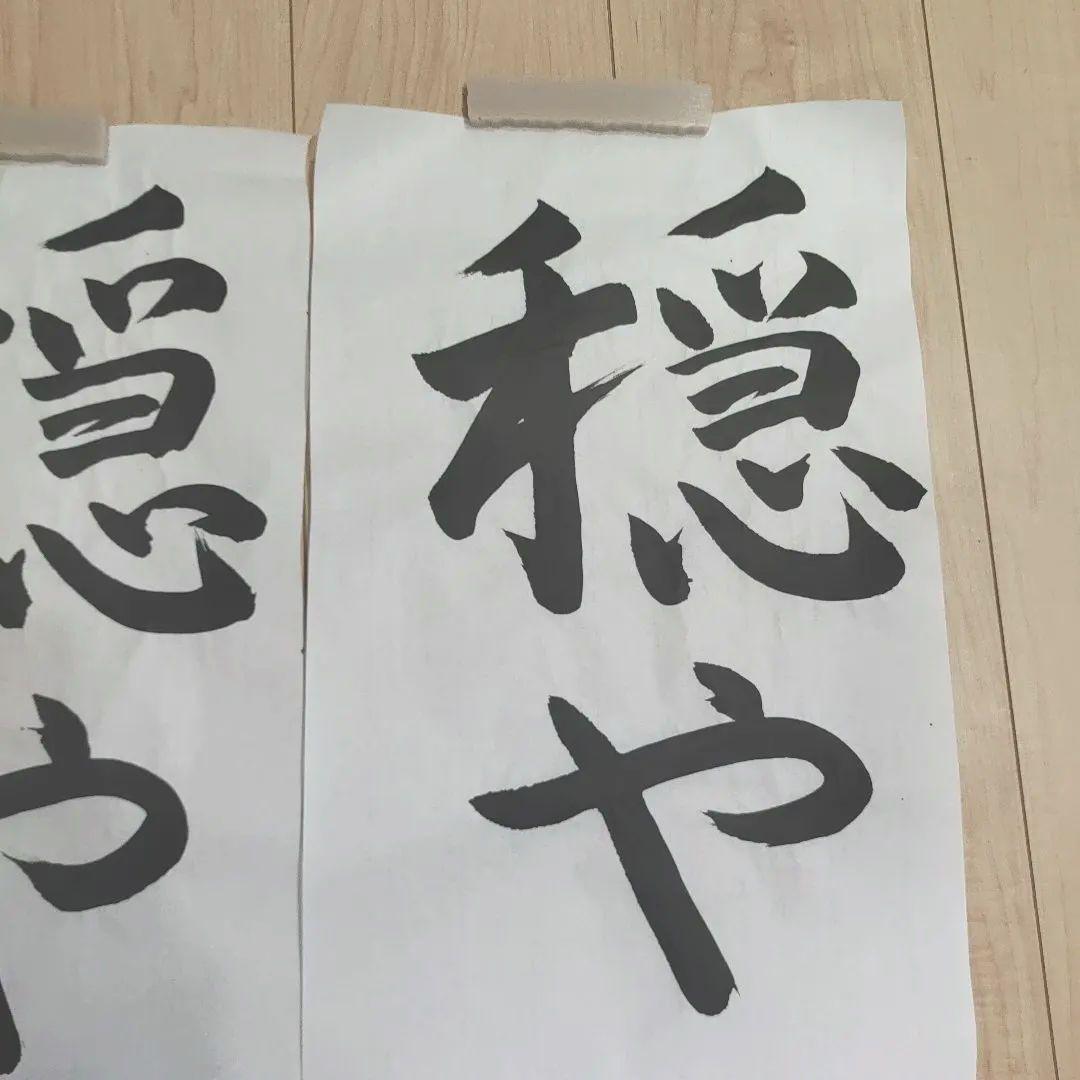 穏や
穏や